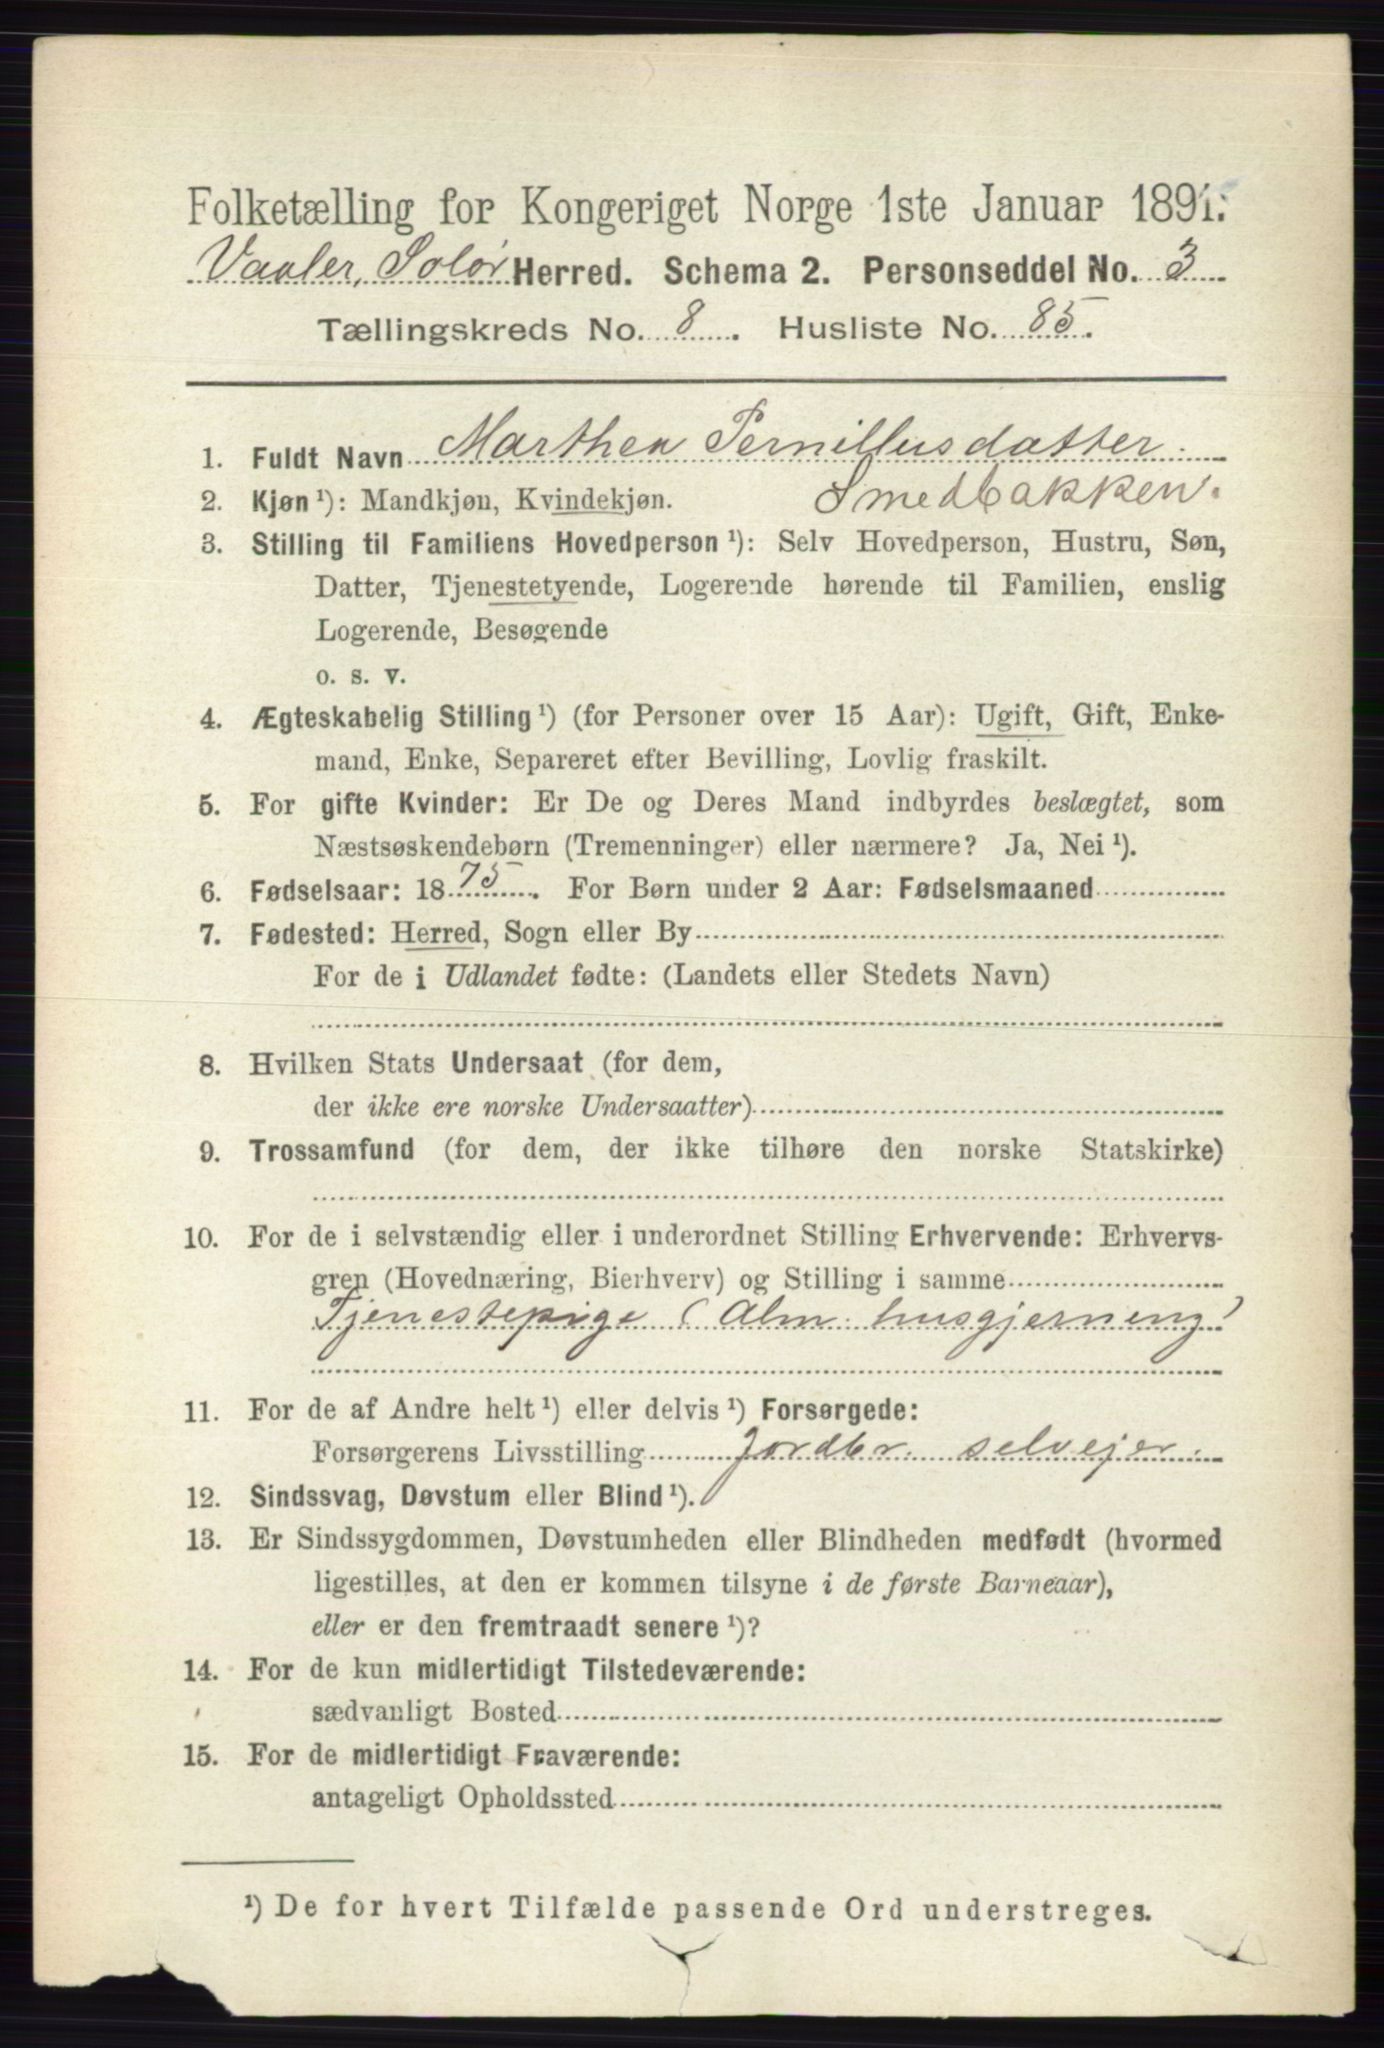 Folketælling for Kongeriget Norge 1ste Januar 1891.
Vaaler, Solør Herred. Schema 2. Personseddel No. 3
Tællingskreds No. 8. Husliste No. 85.
1. Fuldt Navn Marthea Pernillusdatter.
2. Kjøn ¹): Mandkjøn, Kvindekjøn. Smedbakken.
3. Stilling til Familiens Hovedperson ¹): Selv Hovedperson, Hustru, Søn,
Datter, Tjenestetyende, Logerende hørende til Familien, enslig
Logerende, Besøgende
o. s. v.
4. Ægteskabelig Stilling ¹) (for Personer over 15 Aar): Ugift, Gift, Enke-
mand, Enke, Separeret efter Bevilling, Lovlig fraskilt.
5. For gifte Kvinder: Er De og Deres Mand indbyrdes beslægtet, som
Næstsøskendebørn (Tremenninger) eller nærmere? Ja, Nei ¹).
6. Fødselsaar: 1875. For Børn under 2 Aar: Fødselsmaaned
7. Fødested: Herred, Sogn eller By
For de i Udlandet fødte: (Landets eller Stedets Navn)
8. Hvilken Stats Undersaat (for dem,
der ikke ere norske Undersaatter)
9. Trossamfund (for dem, der ikke tilhøre den norske Statskirke)
10. For de i selvstændig eller i underordnet Stilling Erhvervende: Erhvervs-
gren (Hovednæring, Bierhverv) og Stilling i samme
Tjenestepige (Alm. husgjerneng)
11. For de af Andre helt ¹) eller delvis ¹) Forsørgede:
Forsørgerens Livsstilling Jordbr. selvejer.
12. Sindssvag, Døvstum eller Blind ¹).
13. Er Sindssygdommen, Døvstumheden eller Blindheden medfødt (hvormed
ligestilles, at den er kommen tilsyne i de første Barneaar),
eller er den fremtraadt senere ¹)?
14. For de kun midlertidigt Tilstedeværende:
sædvanligt Bosted
15. For de midlertidigt Fraværende:
antageligt Opholdssted
¹) De for hvert Tilfælde passende Ord understreges.